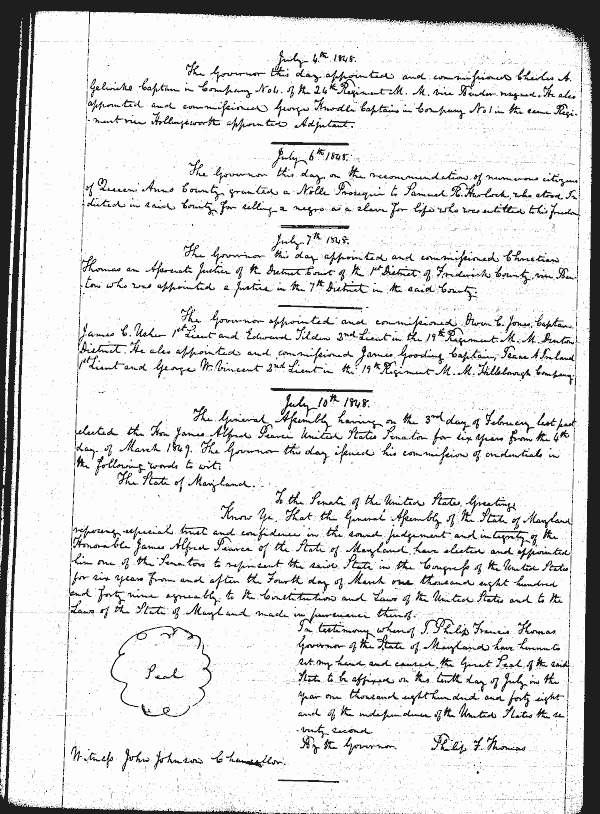 July 4th 1848.
The Governor this day appointed and commissioned Charles A.
Gelwicks Captain in Company No 4. of the 24th Regiment M. M. vice Bender resigned. He also
appointed and commissioned George Knodle Captain in Company No 1 in the same Regi-
ment vice Hollingsworth appointed Adjutant.
July 6th 1848.
The Governor this day on the recommendation of numerous citizens
of Queen Anns County granted a Nolle Prosequi to Samuel R. who stood In
dicted in said County for selling a negro as a slave for life who was entitled to his freedom
July 7th 1848.
The Governor this day appointed and commissioned Christian
Thomas an Associate Justice of the District Court of the 1st District of Frederick County vice
ton who was appointed a Justice in the 7th District in the said County.
The Governor appointed and commissioned Owen C. Jones, Captain
James C. Usher 1st Lieut and Edward Tilden 2nd Lieut in the 19th Regiment M. M. Denton
District. He also appointed and commissioned James Gooding Captain,
1st Lieut and George W. Vincent 2nd Lieut in the 19th Regiment M. M. Hillsborough Company.
July 10th 1848.
The General Assembly having on the 3rd day of February last past
elected the Hon James Alfred Pearce United States Senator for six years from the 4th
day of March 1849. The Governor this day issued his commission of credentials in
the following words to wit.
The State of Maryland.
To the Senate of the United States, Greeting,
Know Ye, That the General Assembly of the State of Maryland
reposing especial trust and confidence in the sound judgement and integrity of the
Honorable James Alfred Pearce of the State of Maryland, have elected and appointed
him one of the Senators to represent the said State in the Congress of the United States
for six years from and after the Fourth day of March one thousand eight hundred
and forty nine agreeably to the Constitution and Laws of the United States and to the
Laws of the State of Maryland made in pursuance thereof.
In testimony whereof I. Philip Francis Thomas
Governor of the State of Maryland have hereunto
set my hand and caused the Great Seal of the said
State to be affixed on this tenth day of July in the
year one thousand eight hundred and forty eight
and of the independence of the United States the se
venty second
Seal
By the Governor Philip F. Thomas
Witness John Johnson Chancellor.